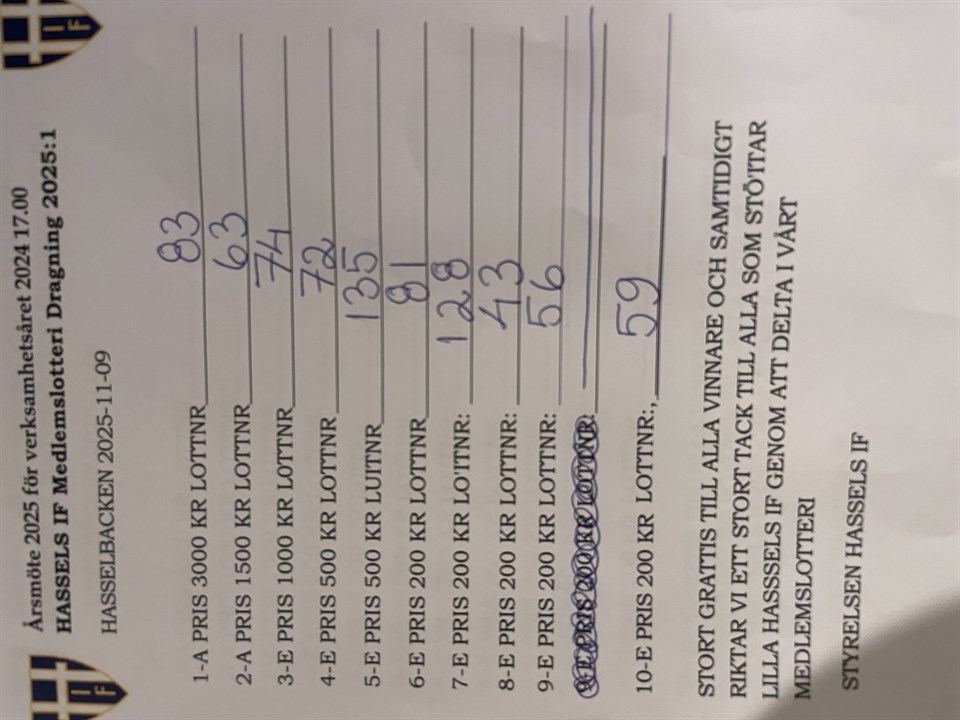 Årsmöte 2025 för verksamhetsåret 2024 17.00
HASSELS IF Medlemslotteri Dragning 2025:1
HASSELBACKEN 2025-11-09
1-A PRIS 3000 KR LOTTNR 83
2-A PRIS 1500 KR LOTTNR 63
3-E PRIS 1000 KR LOTTNR 74
4-E PRIS 500 KR LOTTNR 72
5-E PRIS 500 KR LUITNR 135
6-E PRIS 200 KR LOTTNR 81
7-E PRIS 200 KR LOTTNR: 128
8-E PRIS 200 KR LOTTNR: 43
9-E PRIS 200 KR LOTTNR: 56
9-E PRIS 200 KR LOTTNR:
10-E PRIS 200 KR LOTTNR:, 59
STORT GRATTIS TILL ALLA VINNARE OCH SAMTIDIGT
RIKTAR VI ETT STORT TACK TILL ALLA SOM STÖTTAR
LILLA HASSSELS IF GENOM ATT DELTA I VÅRT
MEDLEMSLOTTERI
STYRELSEN HASSELS IF
IF
IF